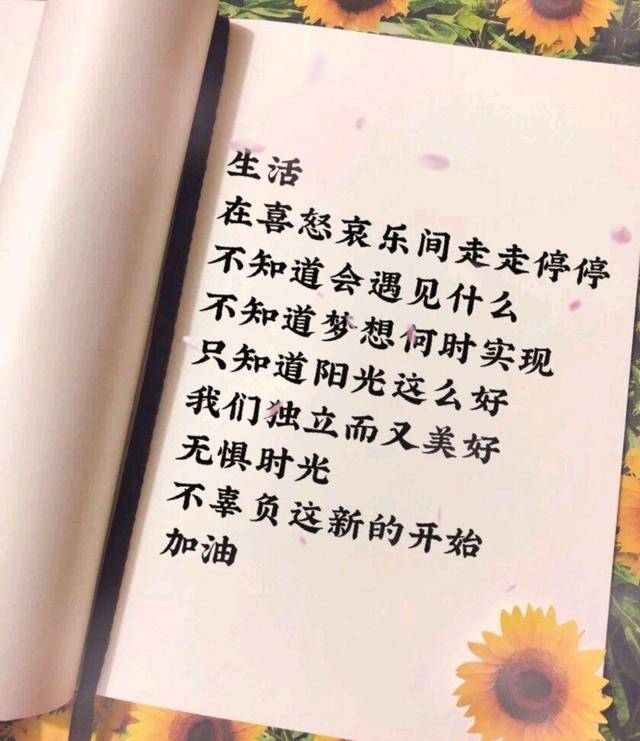 生活
在喜怒哀乐间走走停停
不知道会遇见什么
不知道梦想何时实现
只知道阳光这么好
我们独立而又美好
无惧时光
不辜负这新的开始
加油